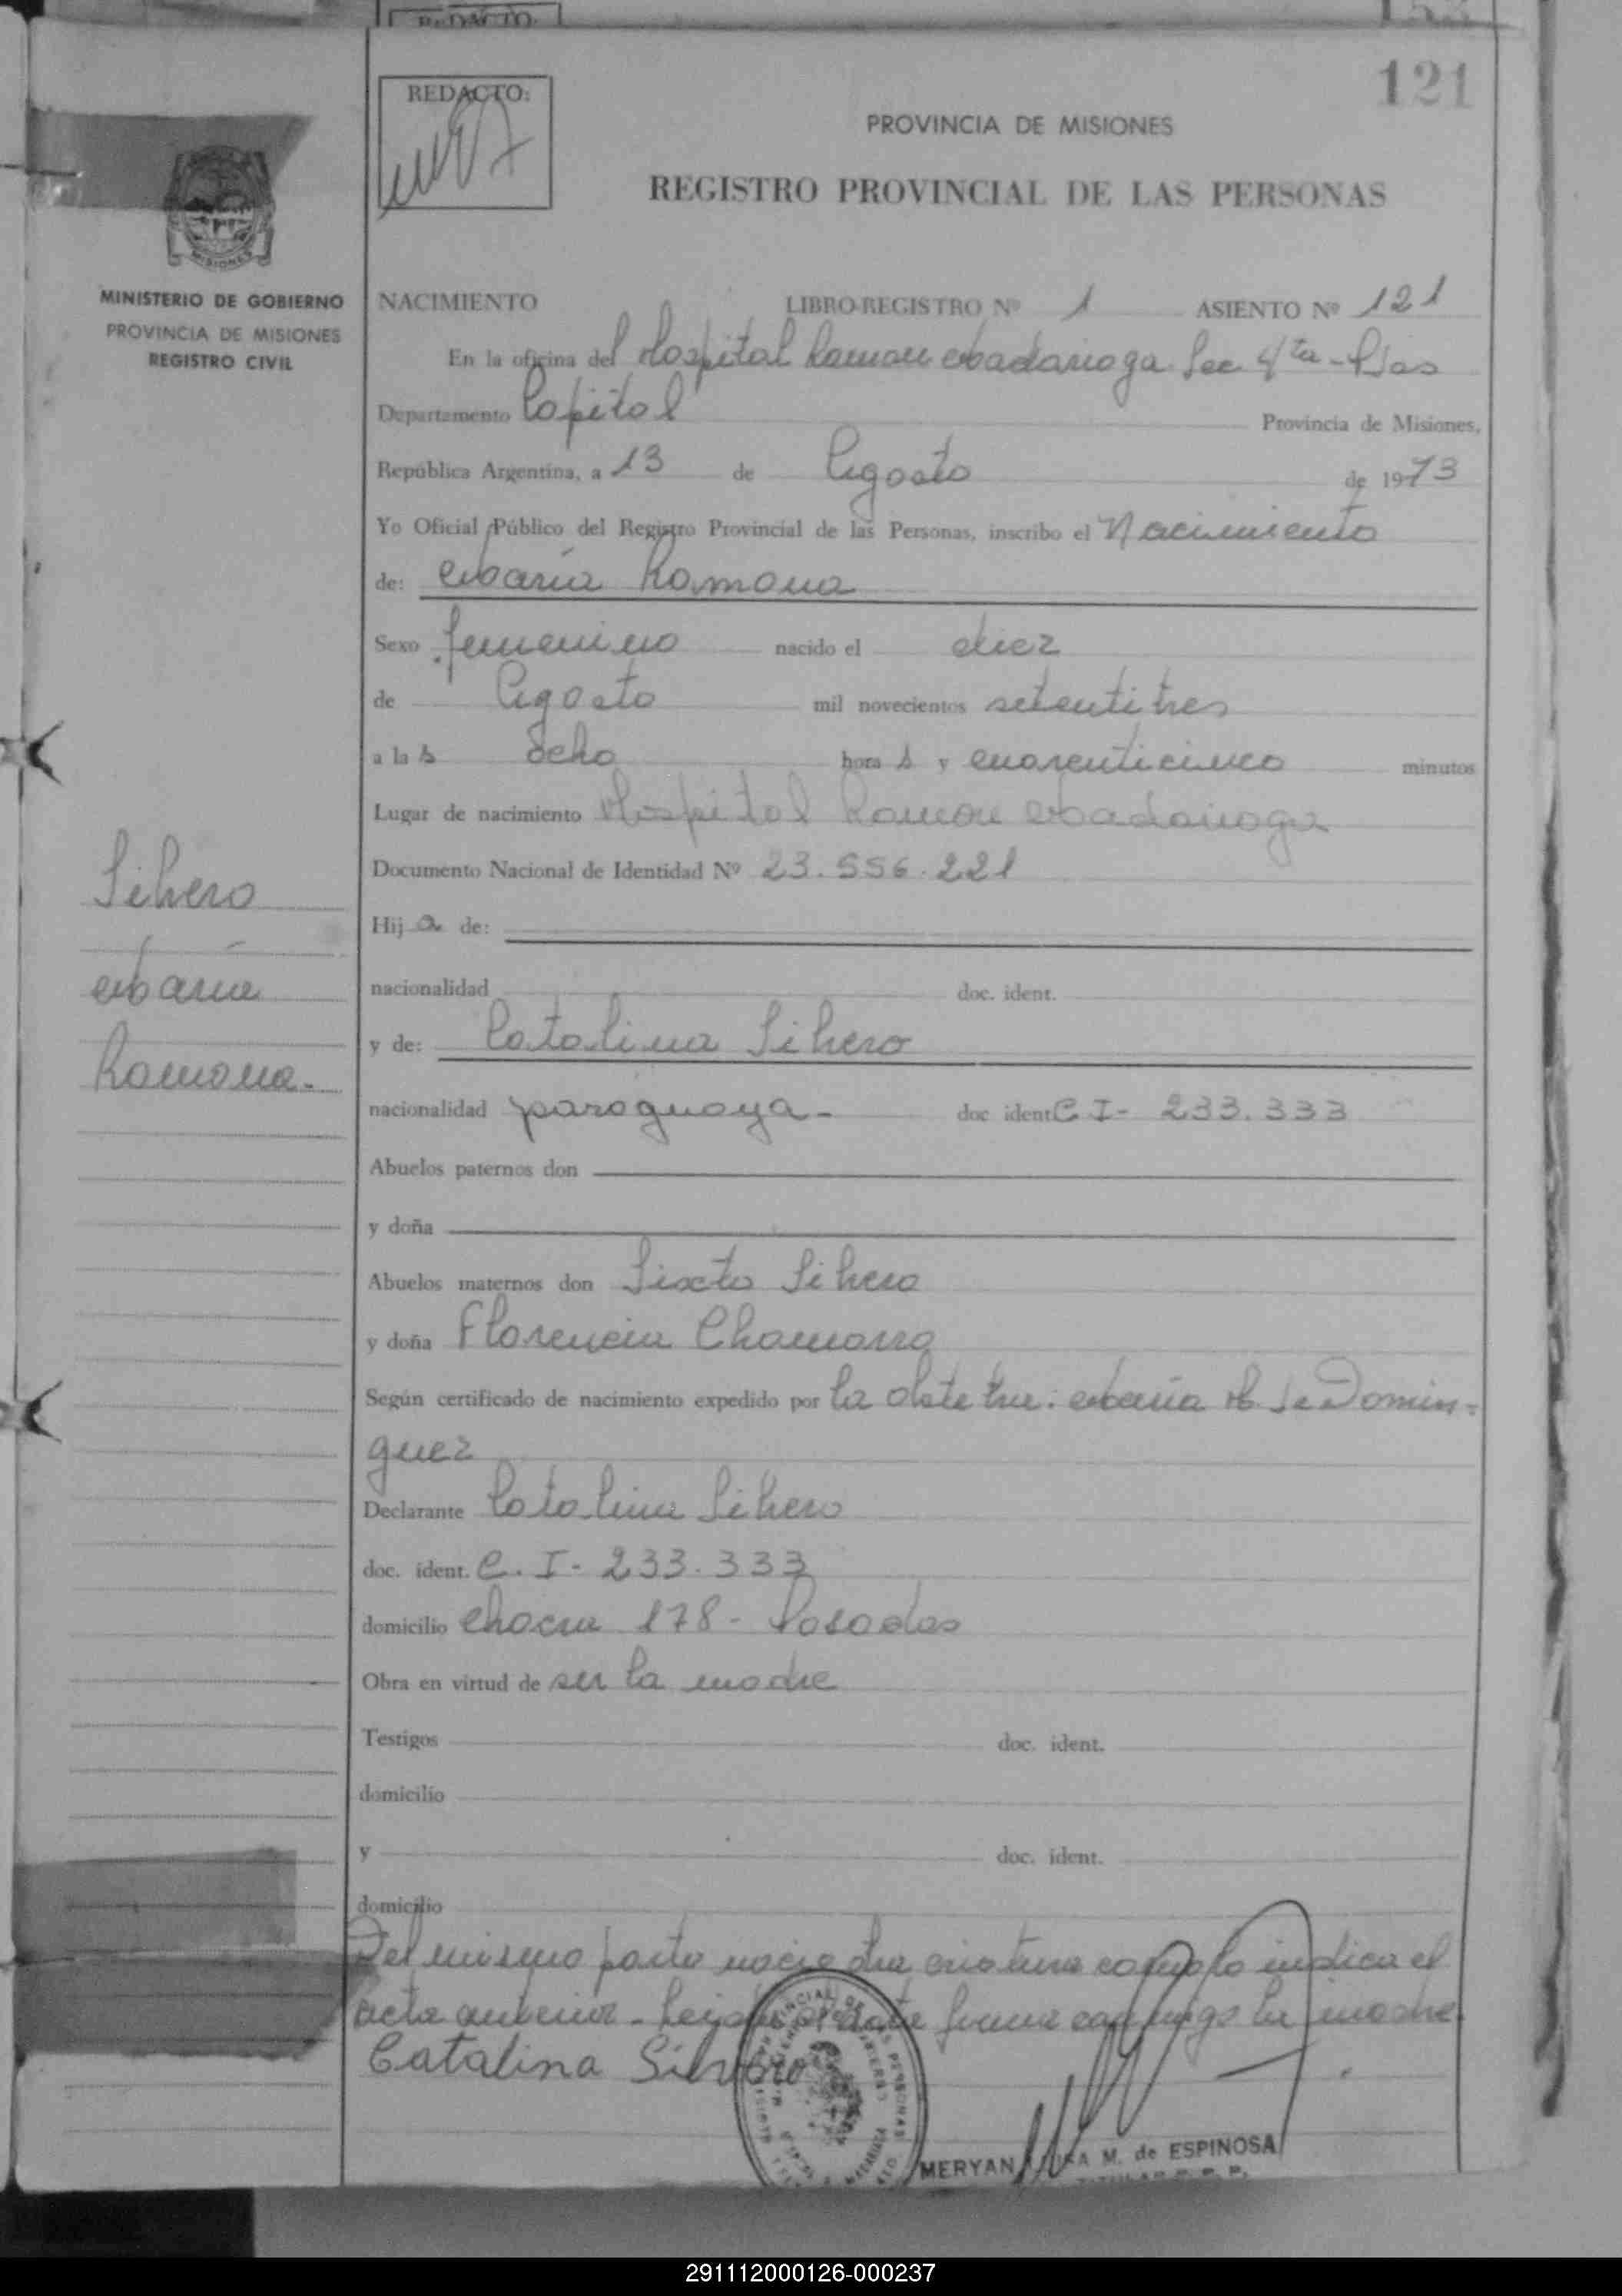 REDACTO.
153
121
REDACTO:
PROVINCIA DE MISIONES
REGISTRO PROVINCIAL DE LAS PERSONAS
MISIONES
MINISTERIO DE GOBIERNO
PROVINCIA DE MISIONES
REGISTRO CIVIL
NACIMIENTO LIBRO-REGISTRO Nº 1 ASIENTO Nº 121
En la oficina del Hospital Ramon Madariaga Sec 4ta - Pdas
Departamento Capital Provincia de Misiones,
República Argentina, a 13 de Agosto de 1973
Yo Oficial Público del Registro Provincial de las Personas, inscribo el Nacimiento
de: María Ramona
Sexo femenino nacido el diez
de Agosto mil novecientos setentitres
a las ocho horas y cuarenticinco minutos
Lugar de nacimiento Hospital Ramon Madariaga
Documento Nacional de Identidad Nº 23.556.221
Hija de:
nacionalidad doc. ident.
y de: Catalina Silvero
nacionalidad paraguaya - doc ident C I - 233.333
Abuelos paternos don
y doña
Abuelos maternos don Sixto Silvero
y doña Florencia Chamorro
Según certificado de nacimiento expedido por la obstetra: María H. de Domin-
guez
Declarante Catalina Silvero
doc. ident. C. I - 233.333
domicilio Chacra 178 - Posadas
Obra en virtud de ser la madre
Testigos doc. ident.
domicilio
y doc. ident.
domicilio
Del mismo parto nació otra criatura como lo indica el
acta anterior - Leida el acta firma conmigo la madre.
Catalina Silvero
MERYAN M. de ESPINOSA
Silvero
María
Ramona.
291112000126-000237